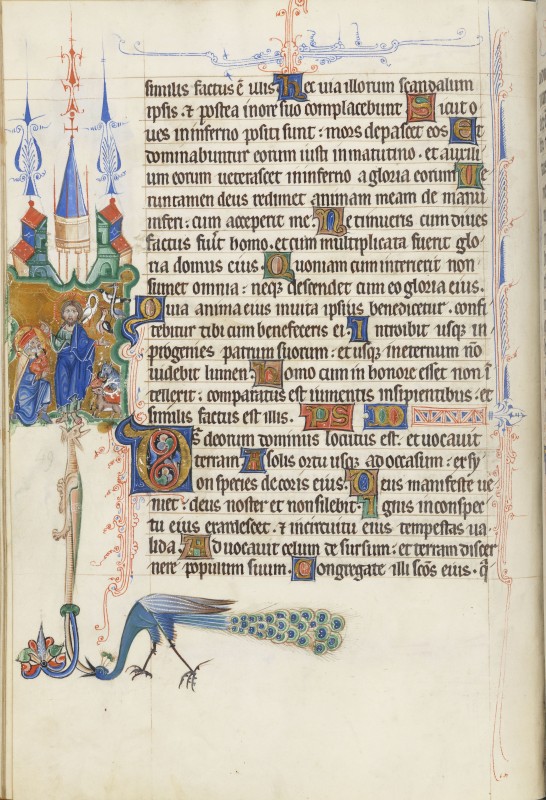 similis factus ē illis Hec uia illorum scandalum
ipsis · & postea in ore suo complacebunt Sicut o
ues in inferno positi sunt : mors depascet eos Et
dominabuntur eorum iusti in matutino · et auxili
um eorum ueterascet in inferno a gloria eorum Ve
runtamen deus redimet animam meam de manu
inferi : cum acceperit me Ne timueris cum diues
factus fuit homo · et cum multiplicata fuerit glo
ria domus eius · Quoniam cum interierit non
sumet omnia : neq descendet cum eo gloria eius ·
Quia anima eius in uita ipsius benedicetur · confi
tebitur tibi cum benefeceris ei Introibit usq in
progenies patrum suorum : et usq in eternum nō
uidebit lumen Homo cum in honore esset non ī
tellexit : comparatus est iumentis insipientibus · et
similis factus est illis · PS
Ds deorum dominus locutus est · et uocauit
terram A solis ortu usq ad occasum : ex sy
on species decoris eius Deus manifeste ue
niet : deus noster et non silebit · Ignis in conspec
tu eius exardescet · & in circuitu eius tempestas ua
lida · Aduocauit celum de sursum : et terram discer
nere populum suum · Congregate illi scōs eius · q̄